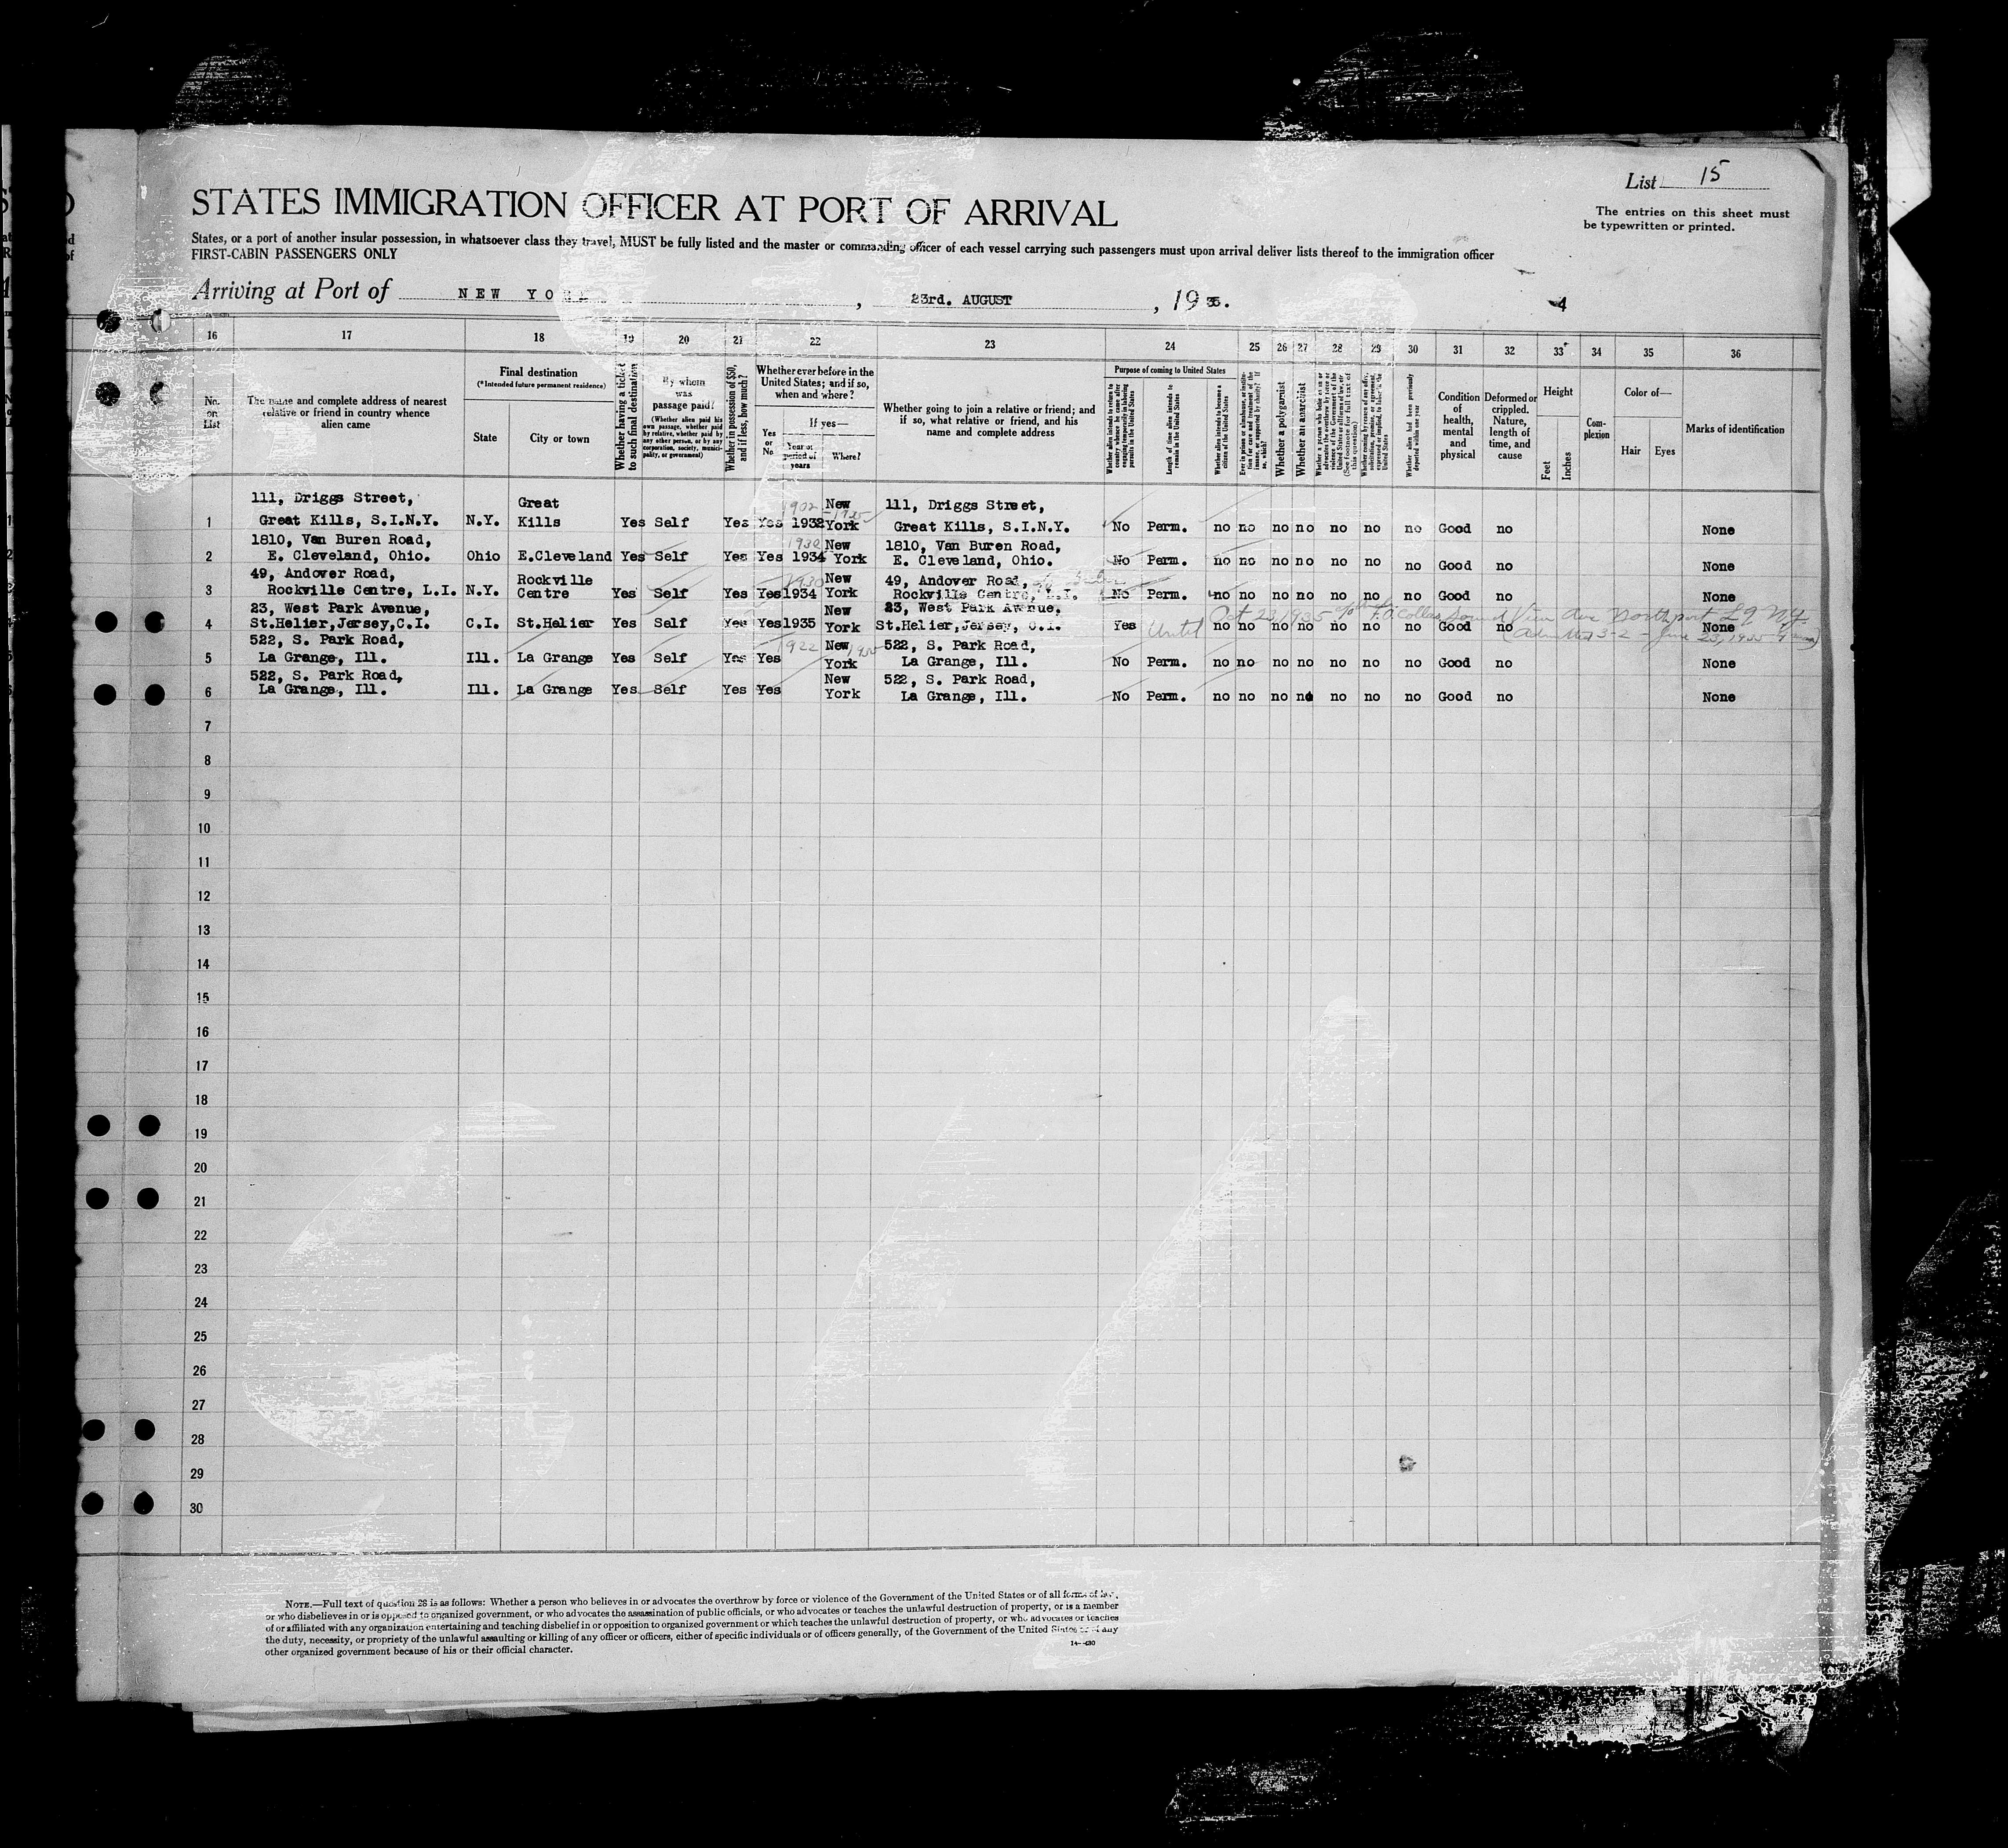 List 15
STATES IMMIGRATION OFFICER AT PORT OF ARRIVAL
The entries on this sheet must
be typewritten or printed.
States, or a port of another insular possession, in whatsoever class they travel, MUST be fully listed and the master or commanding officer of each vessel carrying such passengers must upon arrival deliver lists thereof to the immigration officer
FIRST-CABIN PASSENGERS ONLY
Arriving at Port of NEW YORK, 23rd. AUGUST, 1935.
4
16 17 18 19 20 21 22 23 24 25 26 27 28 29 30 31 32 33 34 35 36
No. on List
The name and complete address of nearest
relative or friend in country whence
alien came
Final destination
(*Intended future permanent residence)
State
City or town
Whether having a ticket
to such final destination
By whom
was
passage paid?
(Whether alien paid his
own passage, whether paid
by relative, whether paid by
any other person, or by any
corporation, society, munici-
pality, or government)
Whether in possession of $50,
and if less, how much?
Whether ever before in the
United States; and if so,
when and where?
Yes
or
No
If yes—
Year or
period of
years
Where?
Whether going to join a relative or friend; and
if so, what relative or friend, and his
name and complete address
Purpose of coming to United States
Length of time alien intends to
remain in the United States
Whether alien intends to become a
citizen of the United States
Whether a polygamist
Whether an anarchist
Condition
of
health,
mental
and
physical
Deformed or
crippled.
Nature,
length of
time, and
cause
Height
Feet
Inches
Com-
plexion
Color of—
Hair
Eyes
Marks of identification
111, Driggs Street, Great 1902 New 111, Driggs Street,
1 Great Kills, S.I.N.Y. N.Y. Kills Yes Self Yes Yes 1932 York Great Kills, S.I.N.Y. No Perm. no no no no no no no Good no None
1810, Van Buren Road, 1930 New 1810, Van Buren Road,
2 E. Cleveland, Ohio. Ohio E.Cleveland Yes Self Yes Yes 1934 York E. Cleveland, Ohio. No Perm. no no no no no no no Good no None
49, Andover Road, Rockville 1930 New 49, Andover Road,
3 Rockville Centre, L.I. N.Y. Centre Yes Self Yes Yes 1934 York Rockville Centre, L.I. No Perm. no no no no no no no Good no None
23, West Park Avenue, New 23, West Park Avenue, Oct 23, 1935 Sound View Ave Northport L I NY
4 St.Helier,Jersey,C.I. C.I. St.Helier Yes Self Yes Yes 1935 York St.Helier,Jersey, C.I. Yes Until no no no no no no no Good no None
(Admitted 3-2 – June 23, 1935
522, S. Park Road, 1922 New 522, S. Park Road,
5 La Grange, Ill. Ill. La Grange Yes Self Yes Yes York La Grange, Ill. No Perm. no no no no no no no Good no None
522, S. Park Road, New 522, S. Park Road,
6 La Grange, Ill. Ill. La Grange Yes Self Yes Yes York La Grange, Ill. No Perm. no no no no no no no Good no None
7
8
9
10
11
12
13
14
15
16
17
18
19
20
21
22
23
24
25
26
27
28
29
30
NOTE.—Full text of question 28 is as follows: Whether a person who believes in or advocates the overthrow by force or violence of the Government of the United States or of all forms of law,
or who disbelieves in or is opposed to organized government, or who advocates the assassination of public officials, or who advocates or teaches the unlawful destruction of property, or is a member
of or affiliated with any organization entertaining and teaching disbelief in or opposition to organized government or which teaches the unlawful destruction of property, or who advocates or teaches
the duty, necessity, or propriety of the unlawful assaulting or killing of any officer or officers, either of specific individuals or of officers generally, of the Government of the United States or of any
other organized government because of his or their official character.